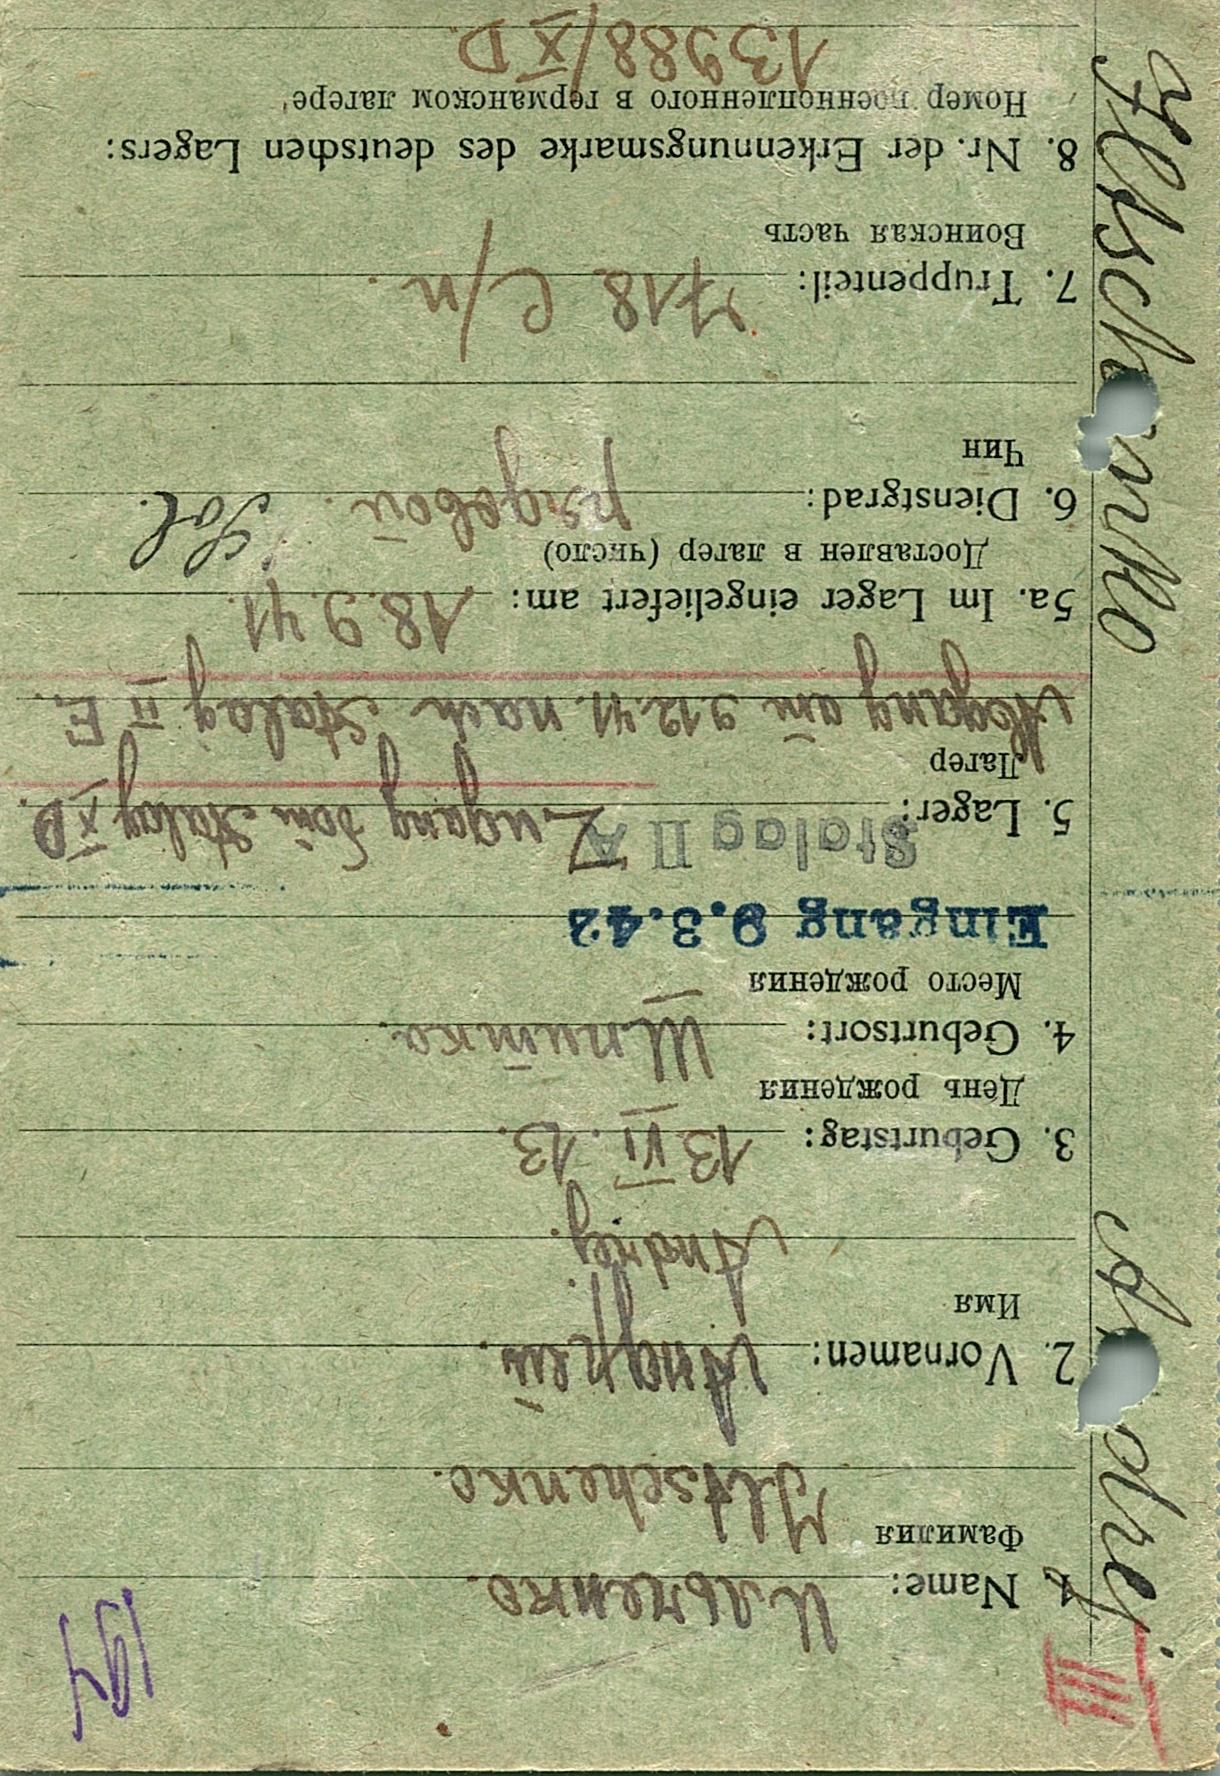 194
III
1. Name: Ильченко.
Фамилия
Iltschenko.
2. Vornamen: Андрей.
Имя
Andrej.
3. Geburtstag: 13 VI. 13.
День рождения
4. Geburtsort: Шпитка.
Место рождения
Eingang 9.3.42
Stalag II A
5. Lager: Zugang vom Stalag X D.
Лагер
Abgang am 9.12.41. nach Stalag II E.
5a. Im Lager eingeliefert am: 18.9.41.
Доставлен в лагер (число)
6. Dienstgrad: рядовой. Sol.
Чин
7. Truppenteil: 718 с/п.
Воинская часть
8. Nr. der Erkennungsmarke des deutschen Lagers:
Номер военнопленного в германском лагере
13988/X D
Iltschenko Andrej